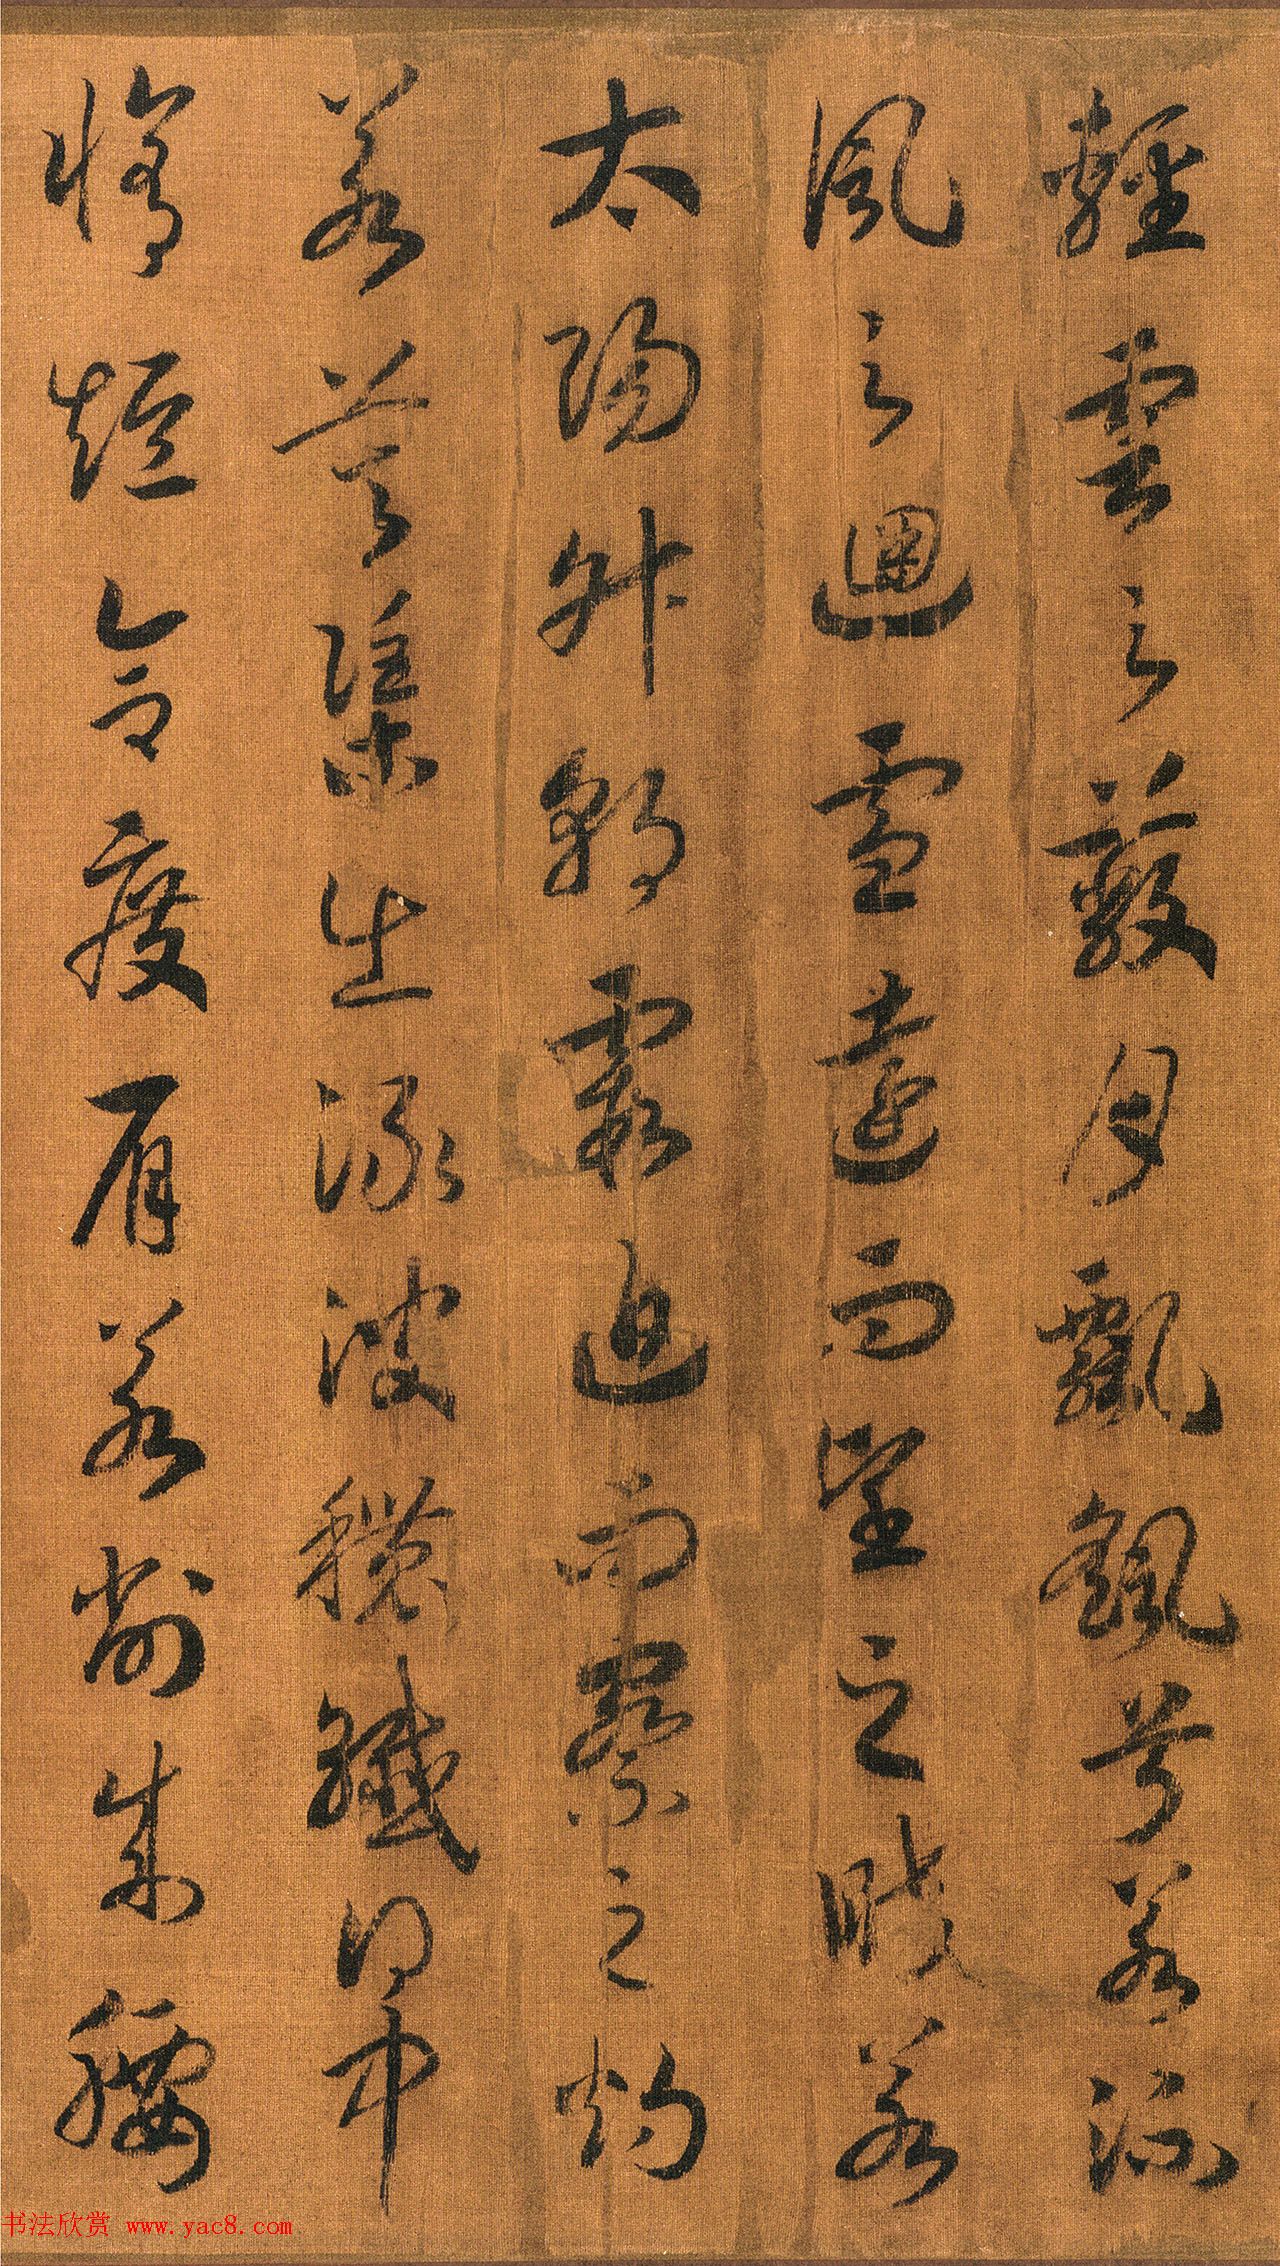 輕雲之蔽月飄颻兮若流
風之迴雪遠而望之皎若
太陽升朝霞迫而察之灼
若芙蕖出淥波穠纖得中
脩短合度肩若削成腰
书法欣赏 www.yac8.com